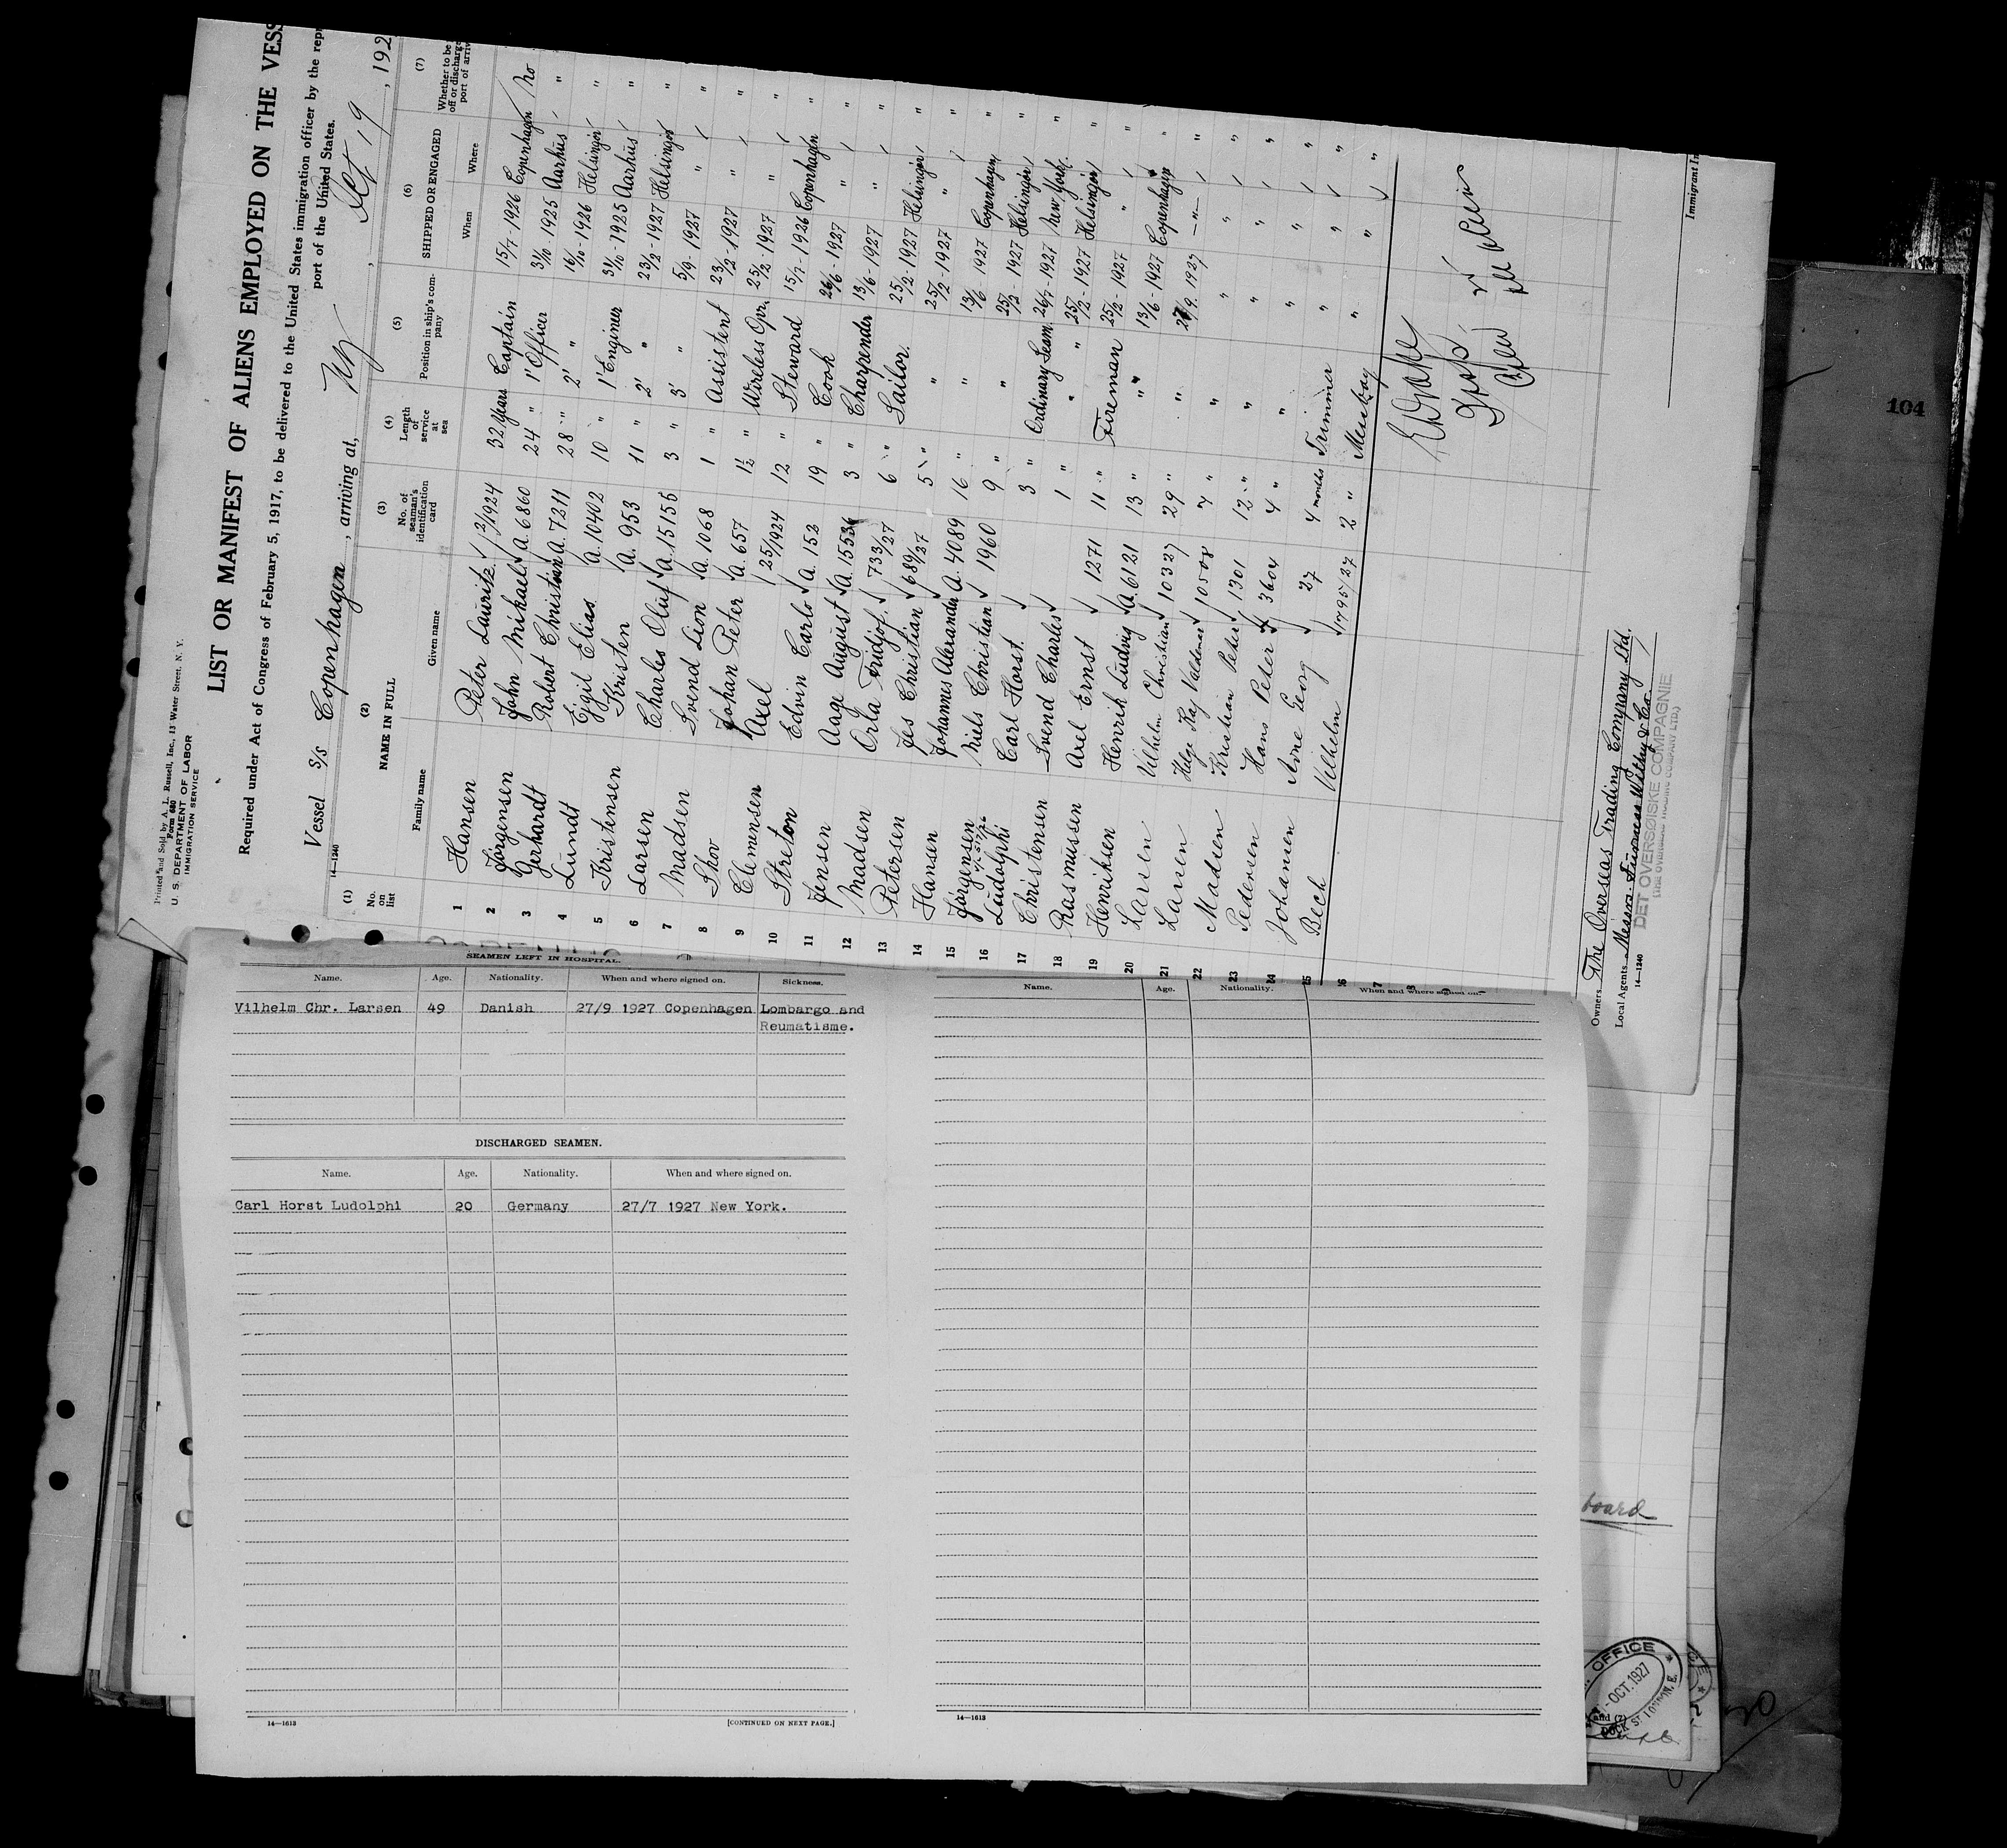 Printed and Sold by A. L. Russell, Inc., 13 Water Street, N. Y.
Form 680
U. S. DEPARTMENT OF LABOR
IMMIGRATION SERVICE
LIST OR MANIFEST OF ALIENS EMPLOYED ON THE VESS
Required under Act of Congress of February 5, 1917, to be delivered to the United States immigration officer by the repr
port of the United States.
Vessel S/s Copenhagen, arriving at, NY, Oct 19, 192
14—1240
(1) (2) (3) (4) (5) (6) (7)
No. on list NAME IN FULL No. of seaman's identification card Length of service at sea Position in ship's company SHIPPED OR ENGAGED Whether to be off or discharge port of arriv
Family name Given name When Where
1 Hansen Peter Lauritz. 2/1924 32 years Captain 15/7-1926 Copenhagen No
2 Jörgensen John Mikael a. 6860 24 " 1' Officer 31/10-1925 Aarhus "
3 Gerhardt Robert Christian a. 7211 28 " 2' " 16/10-1926 Helsingör "
4 Lundt Ejgil Elias a. 10402 10 " 1' Enginer 31/10-1925 Aarhus "
5 Kristensen Kristen a. 953 11 " 2' " 23/2-1927 Helsingör "
6 Larsen Charles Oluf a. 15155 3 " 3' " 5/9-1927 " "
7 Madsen Svend Lion a. 1068 1 " Assistent 23/2-1927 " "
8 Skov Johan Peter a. 657 1½ " Wireless Opr. 25/2-1927 " "
9 Clemensen Axel 25/1924 12 " Steward 15/7-1926 Copenhagen "
10 Streton Edvin Carlo a. 153 19 " Cook 26/6-1927 " "
11 Jensen Aage August a. 15536 3 " Charpender 13/6-1927 " "
12 Madsen Orla Fridjof. 733/27 6 " Sailor. 25/2-1927 Helsingör "
13 Petersen Jes Christian 689/27 5 " " 25/2-1927 " "
14 Hansen Johannes Alexander a. 4089 16 " " 13/6-1927 Copenhagen "
15 Jörgensen Niels Christian 1960 9 " " 25/2-1927 Helsingör "
16 Ludolphi Carl Horst. 3 " Ordinary Seam. 26/7-1927 New York. "
17 Christensen Svend Charles 1 " " " 25/2-1927 Helsingör "
18 Rasmussen Axel Ernst 1271 11 " Fireman 25/2-1927 " "
19 Henriksen Henrik Ludvig a. 6121 13 " " 13/6-1927 Copenhagen "
20 Larsen Vilhelm Christian 10327 29 " " 27/9. 1927 — " — "
21 Larsen Helge Kaj Valdemar 10508 7 " " " " "
22 Madsen Kristian Peter 1301 12 " " " " "
23 Pedersen Hans Peter 3604 4 " " " " "
24 Johansen Arne Georg 27 4 months Trimmer " " "
25 Beck Vilhelm 1795/27 2 " Messboy " " "
26
Owners The Overseas Trading Company Ltd.
Local Agents Messrs. Furness Withy & Co.
DET OVERSØISKE COMPAGNIE
(THE OVERSEAS TRADING COMPANY LTD.)
14—1240
Immigrant In
104
SEAMEN LEFT IN HOSPITAL.
Name. Age. Nationality. When and where signed on. Sickness.
Vilhelm Chr. Larsen 49 Danish 27/9 1927 Copenhagen Lombargo and
Reumatisme.
DISCHARGED SEAMEN.
Name. Age. Nationality. When and where signed on.
Carl Horst Ludolphi 20 Germany 27/7 1927 New York.
14—1613
[CONTINUED ON NEXT PAGE.]
Name. Age. Nationality. When and where signed on.
14—1613
board
OFFICE
OCT. 1927
DOCK ST. LONDON, E.
and (7)